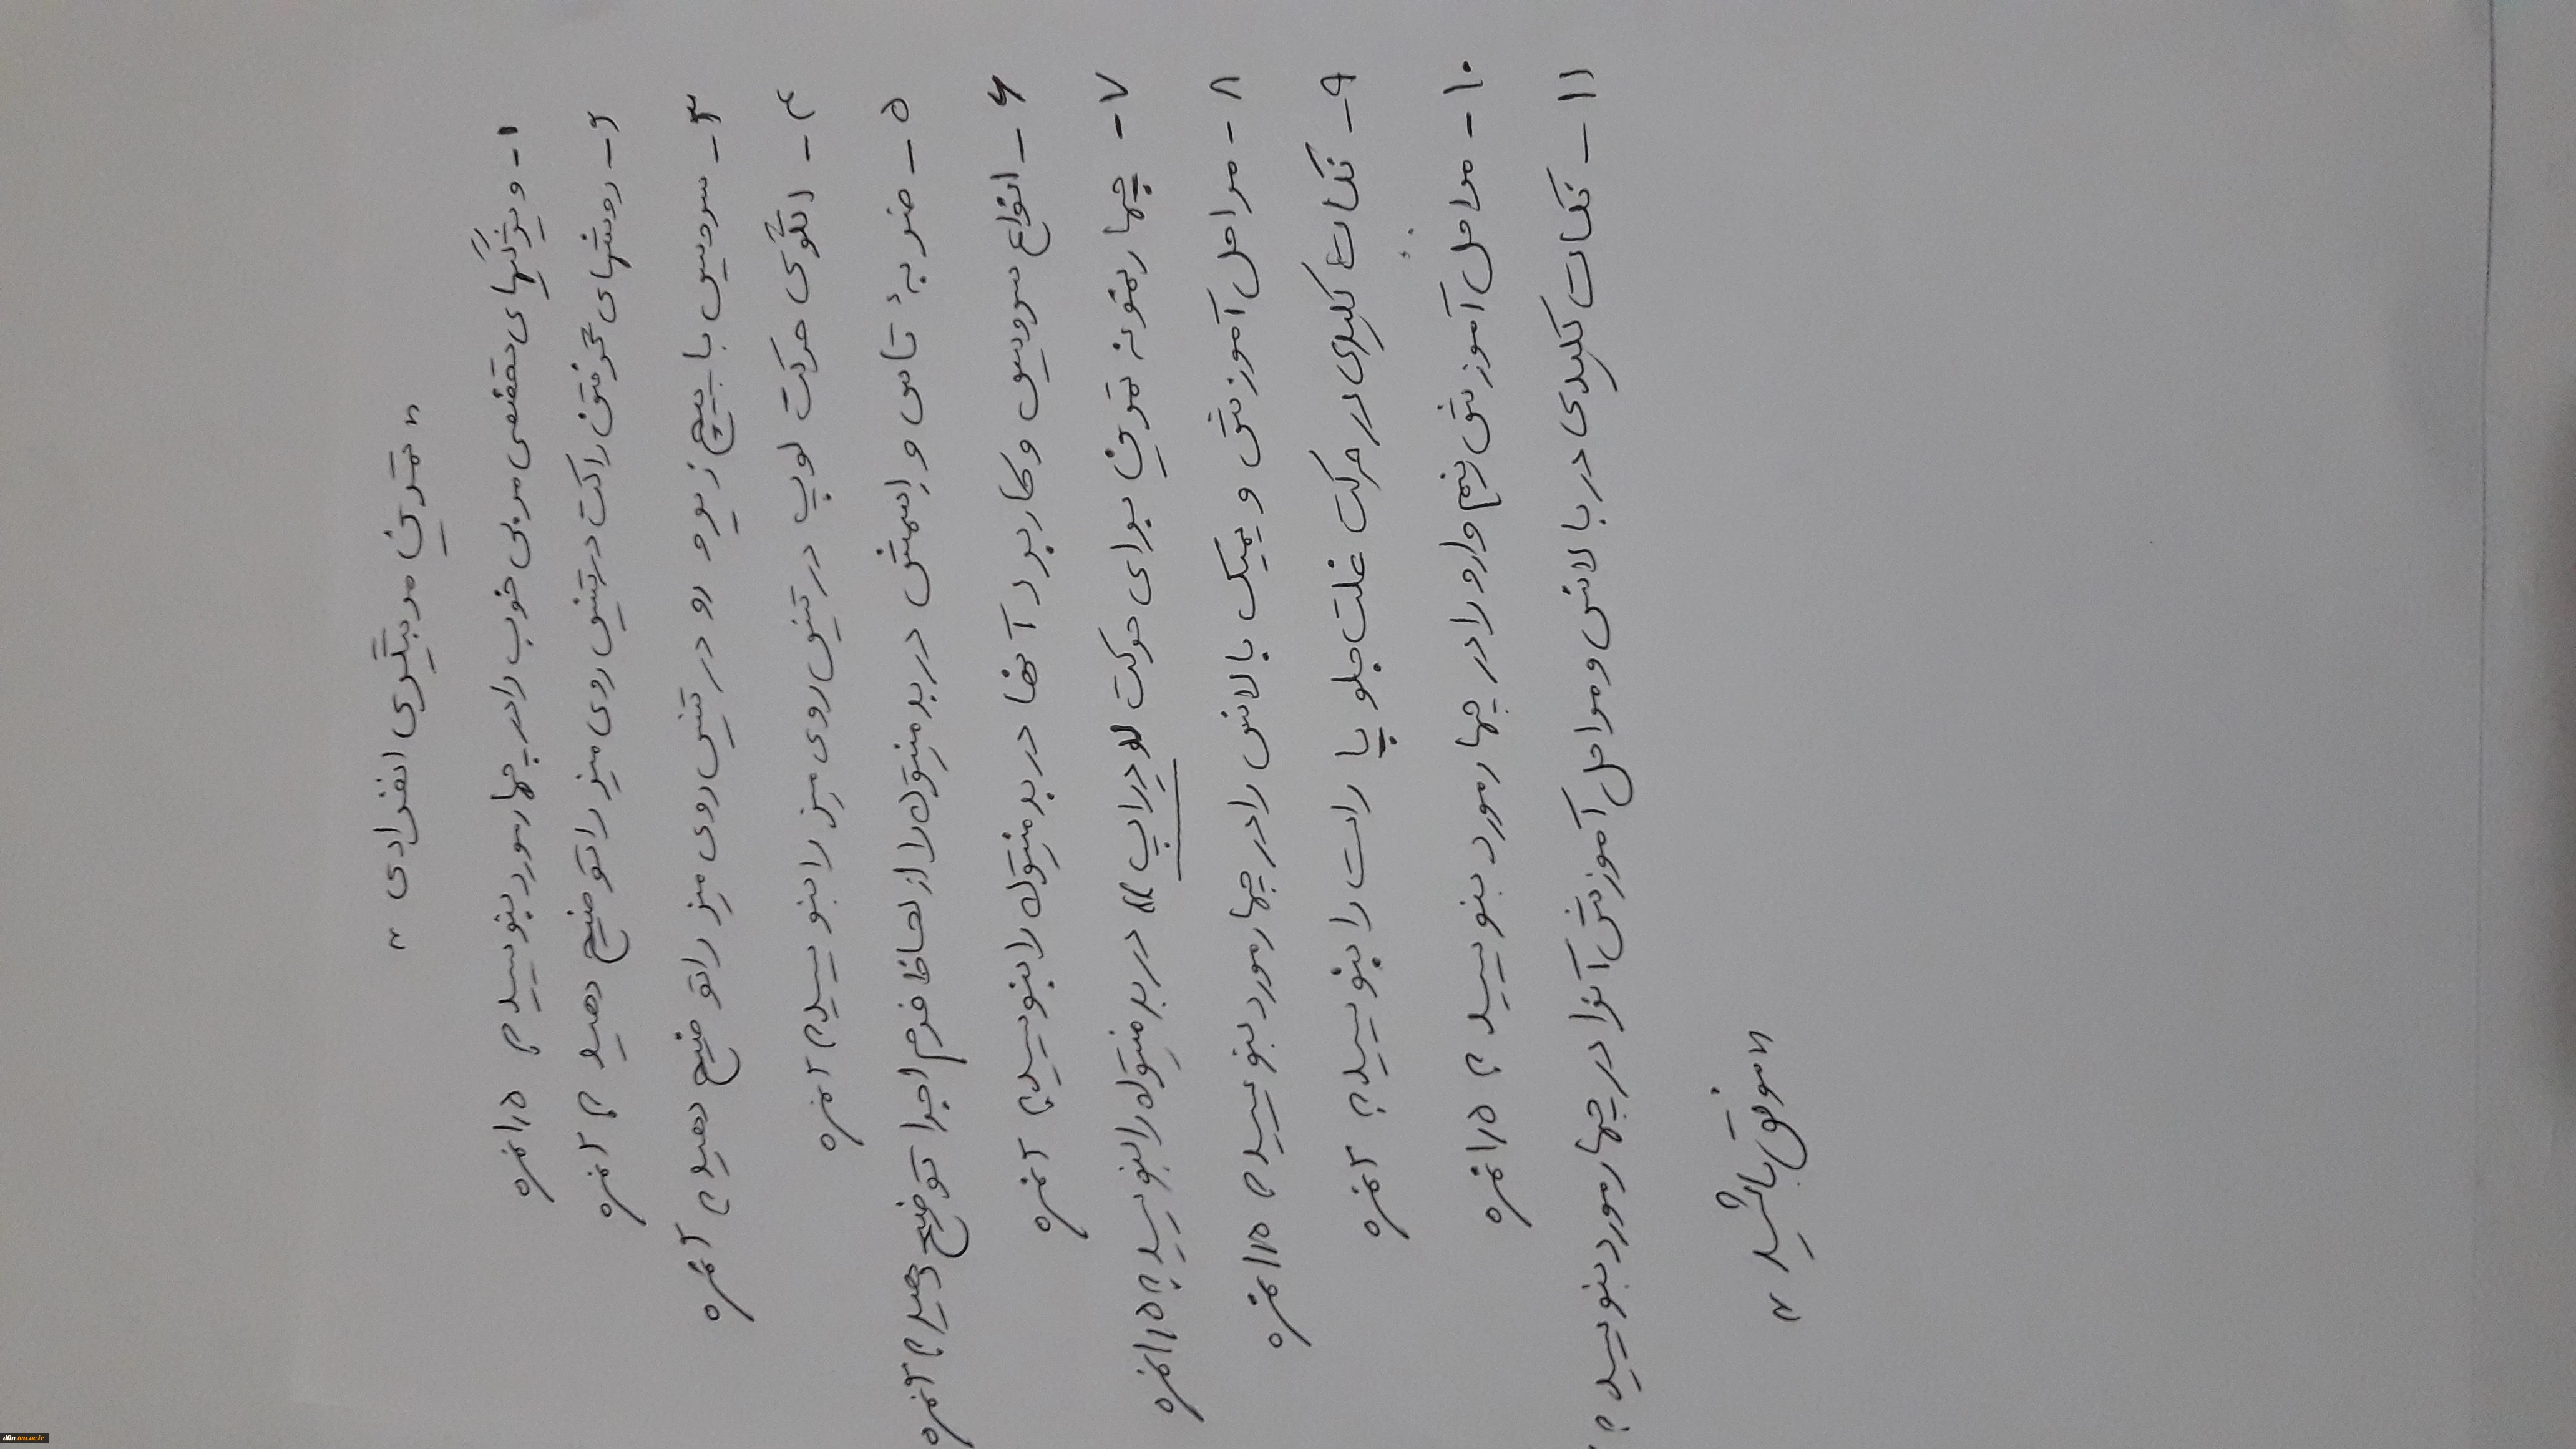 « تمرین مربیگری انفرادی »
۱- ویژگیهای شخصی مربی خوب را در چهار مورد بنویسید؟ ۱/۵ نمره
۲- روشهای گرفتن راکت در تنیس روی میز را توضیح دهید؟ ۲ نمره
۳- سرویس با پیچ زیر و رو در تنیس روی میز را توضیح دهید؟ ۲ نمره
۴- الگوی حرکت لوپ در تنیس روی میز را بنویسید؟ ۲ نمره
۵- ضربهٔ تاس و اسمش در بدمینتون را از لحاظ فرم اجرا توضیح دهید؟ ۲ نمره
۶- انواع سرویس و کاربرد آنها در بدمینتون را بنویسید؟ ۲ نمره
۷- چهار نمونه تمرین برای حرکت دراپ » در بدمینتون را بنویسید؟ ۱/۵ نمره
۸- مراحل آموزش و یمیک بالانس را در چهار مورد بنویسید؟ ۱/۵ نمره
۹- نکات کلیدی در حرکت غلت جلو پا راست را بنویسید؟ ۲ نمره
۱۰- مراحل آموزش نیم وارو را در چهار مورد بنویسید؟ ۱/۵ نمره
۱۱- نکات کلیدی در بالانس و مراحل آموزش آنرا در چهار مورد بنویسید؟
« موفق باشید »
dfm.tvu.ac.ir